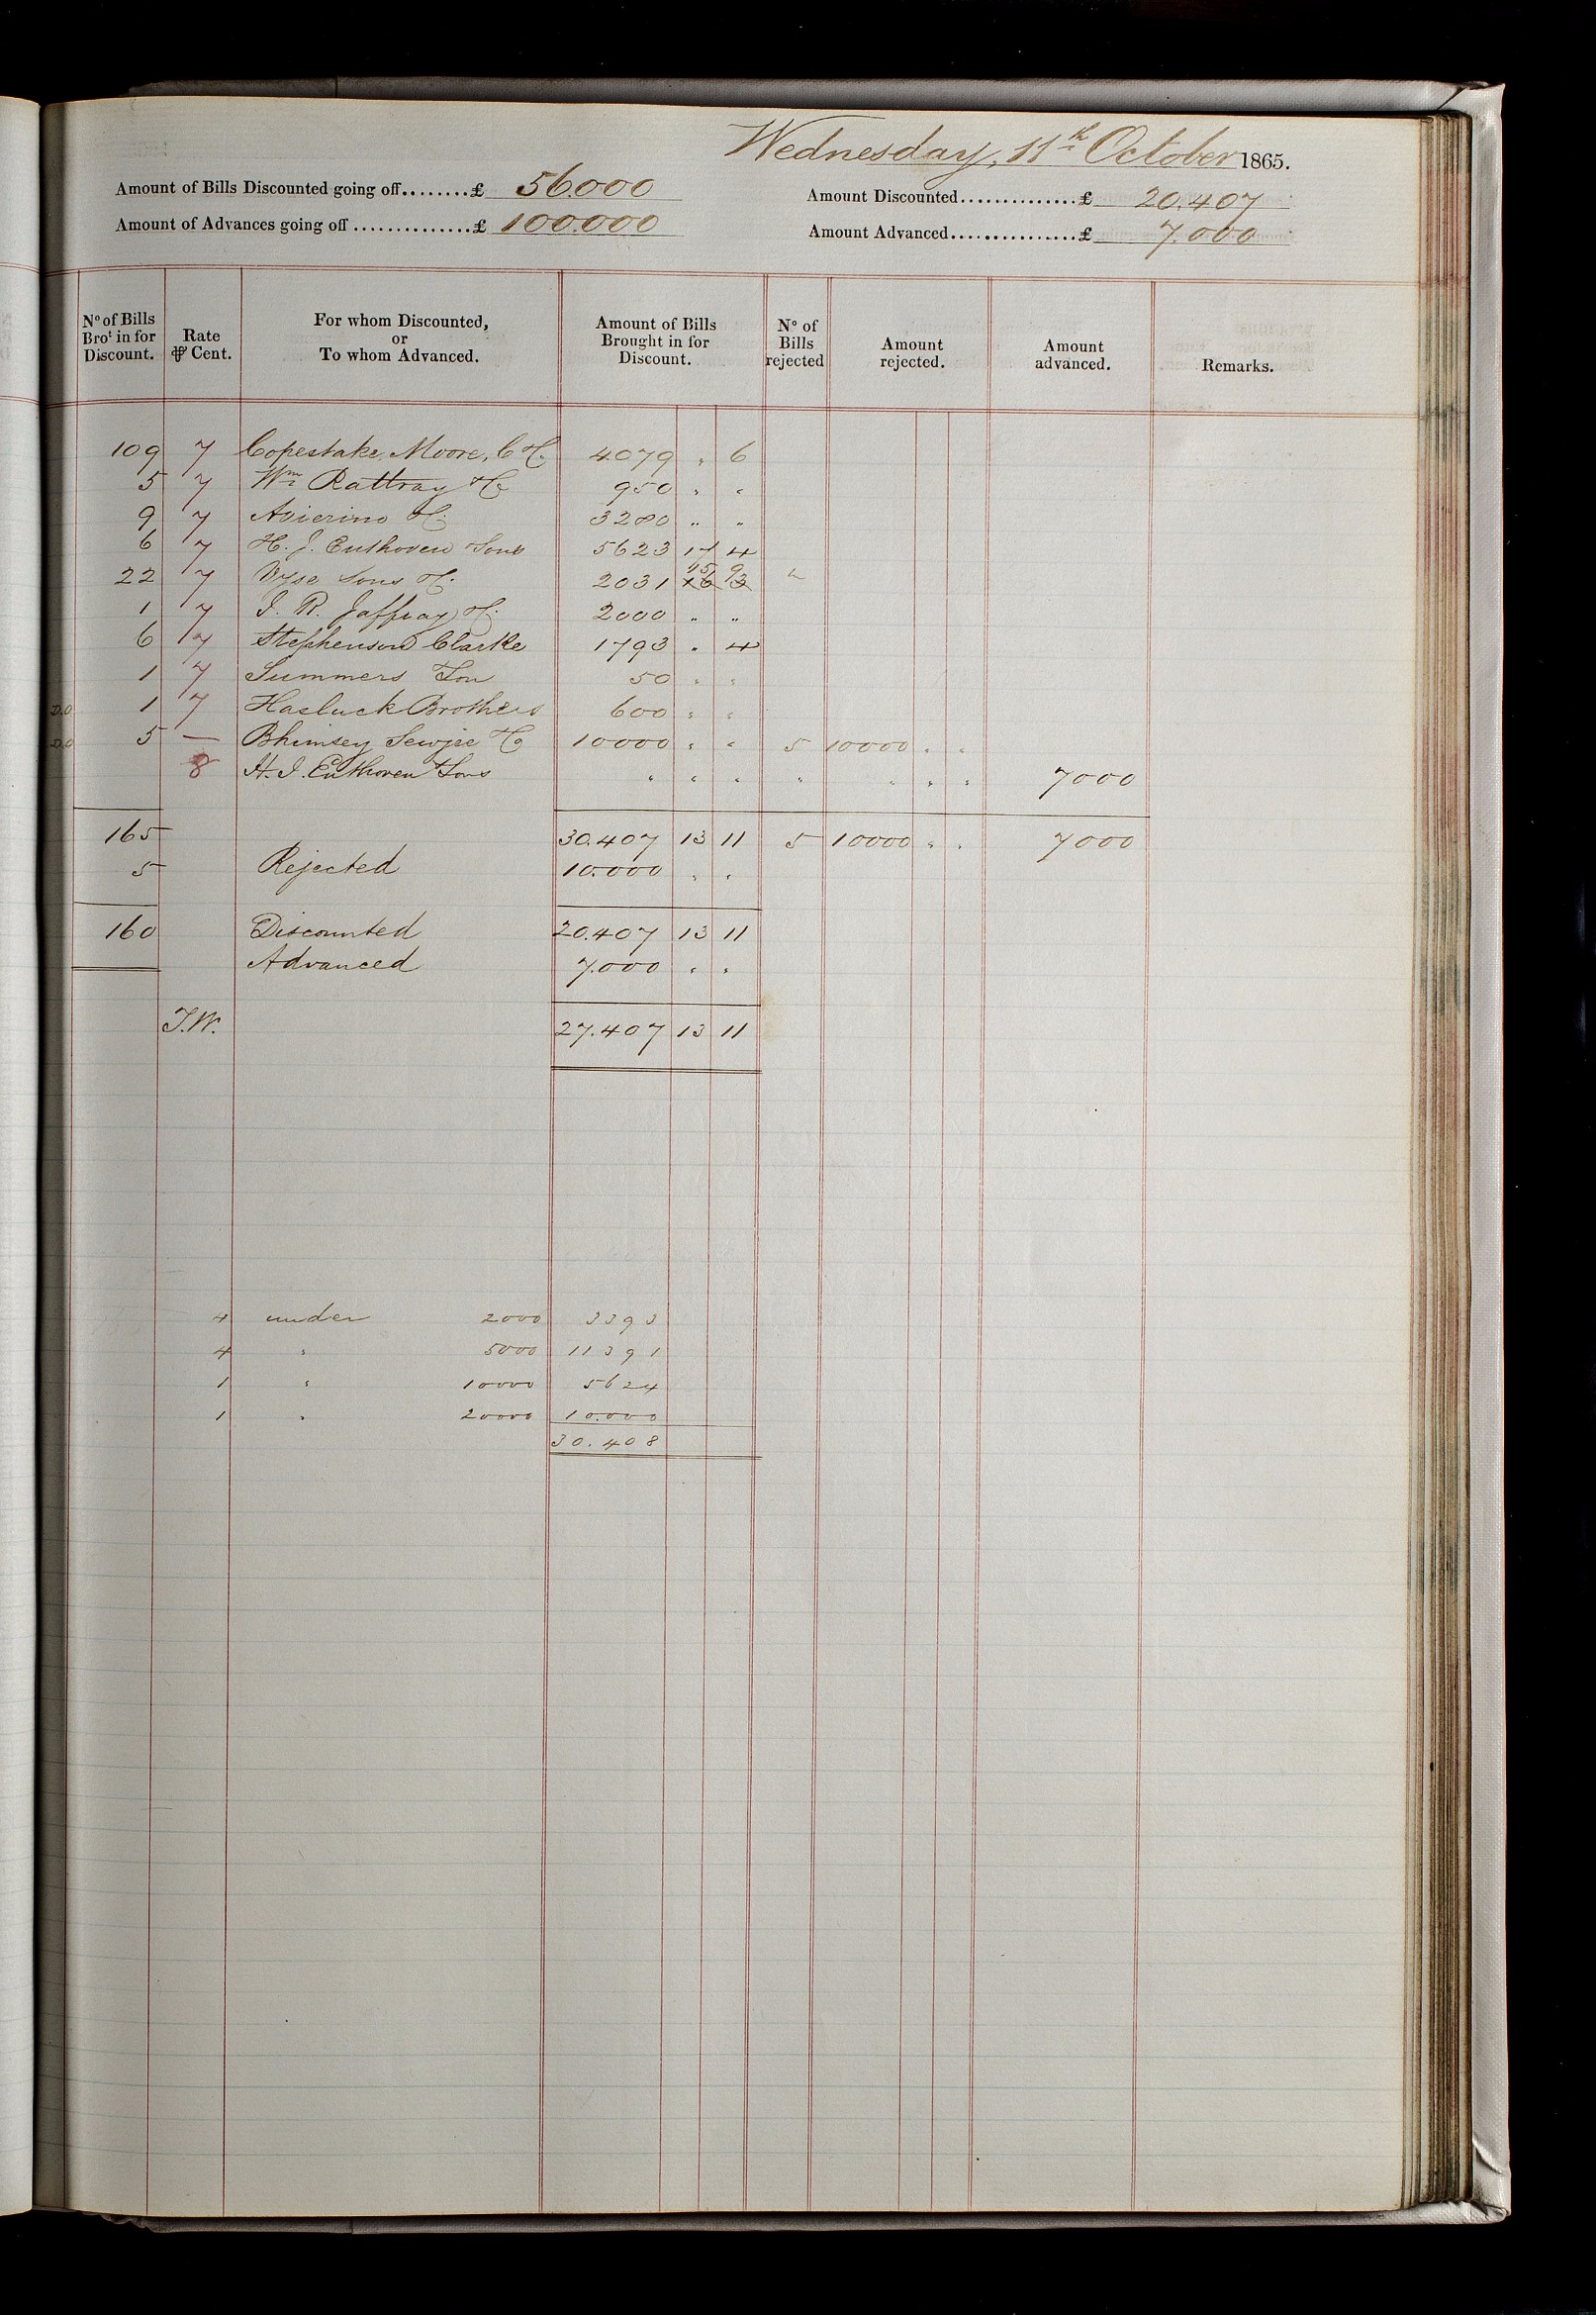 Wednesday, 11th October 1865.
Amount of Bills Discounted going off........£ 56.000 Amount Discounted..............£ 20.407
Amount of Advances going off ..............£ 100.000 Amount Advanced...............£ 7.000
No of Bills Brot in for Discount. Rate ⅌ Cent. For whom Discounted, or To whom Advanced. Amount of Bills Brought in for Discount. No of Bills rejected Amount rejected. Amount advanced. Remarks.
109 7 Copestake, Moore, C & Co. 4079 " 6
5 7 Wm Rattray & Co 950 " "
9 7 Avierino & Co. 3280 " "
6 7 H. J. Enthoven & Sons 5623 17 4
22 7 Vyse Sons & Co. 2031 15 9 16 3
1 7 J. R. Jaffray & Co. 2000 " "
6 7 Stephenson Clarke 1793 " 4
1 7 Summers & Son 50 " "
D.O 1 7 Hasluck Brothers 600 " "
D.O 5 — Bhimsey Sewjee & Co 10000 " " 5 10000 " "
8 H. J. Enthoven & Sons " " " " " " " 7000
165 30.407 13 11 5 10000 " " 7000
5 Rejected 10.000 " "
160 Discounted 20.407 13 11
Advanced 7.000 " "
J.W. 27.407 13 11
4 under 2000 3393
4 " 5000 11391
1 " 10000 5624
1 " 20000 10.000
30.408